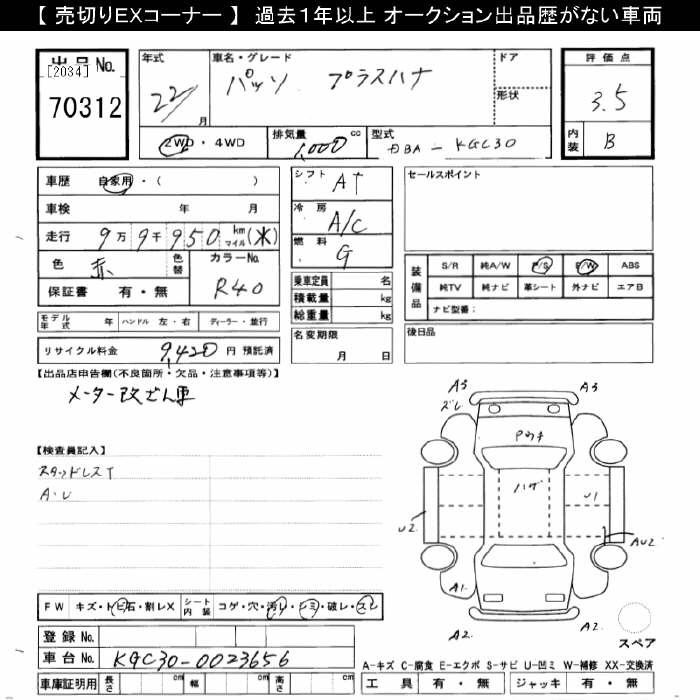 【 売切りEXコーナー 】 過去1年以上 オークション出品歴がない車両
出品 No.
[2034]
70312
年式
22/
月
車名・グレード
パッソ プラスハナ
ドア
形状
評価点
3.5
内装
B
2WD・4WD
排気量
1,000 cc
型式
DBA-KGC30
車歴 自家用・( )
車検 年 月
走行 9万9千950 km マイル (米)
色 赤
色替
カラーNo.
R40
保証書 有・無
シフト
AT
冷房
A/C
燃料
G
乗車定員 名
積載量 kg
総重量 kg
セールスポイント
装備品
S/R 純A/W P/S P/W ABS
純TV 純ナビ 革シート 外ナビ エアB
ナビ型番:
モデル年式 年 ハンドル 左・右 ディーラー・並行
リサイクル料金 9,420 円 預託済
名変期限
月 日
後日品
【出品店申告欄(不良箇所・欠品・注意事項等)】
メーター改ざん車
【検査員記入】
スタッドレスT
A・U
A3
ズレ
A3
Pウチ
ハゲ
U1
U2
AU2
A1
A2
A2
スペア
FW キズ・トビ石・割レX
シート内装
コゲ・穴・汚レ・シミ・破レ・スレ
登録 No.
車台 No. KGC30-0023656
車庫証明用 長さ cm 幅 cm 高さ cm
A-キズ C-腐食 E-エクボ S-サビ U-凹ミ W-補修 XX-交換済
工具 有・無 ジャッキ 有・無